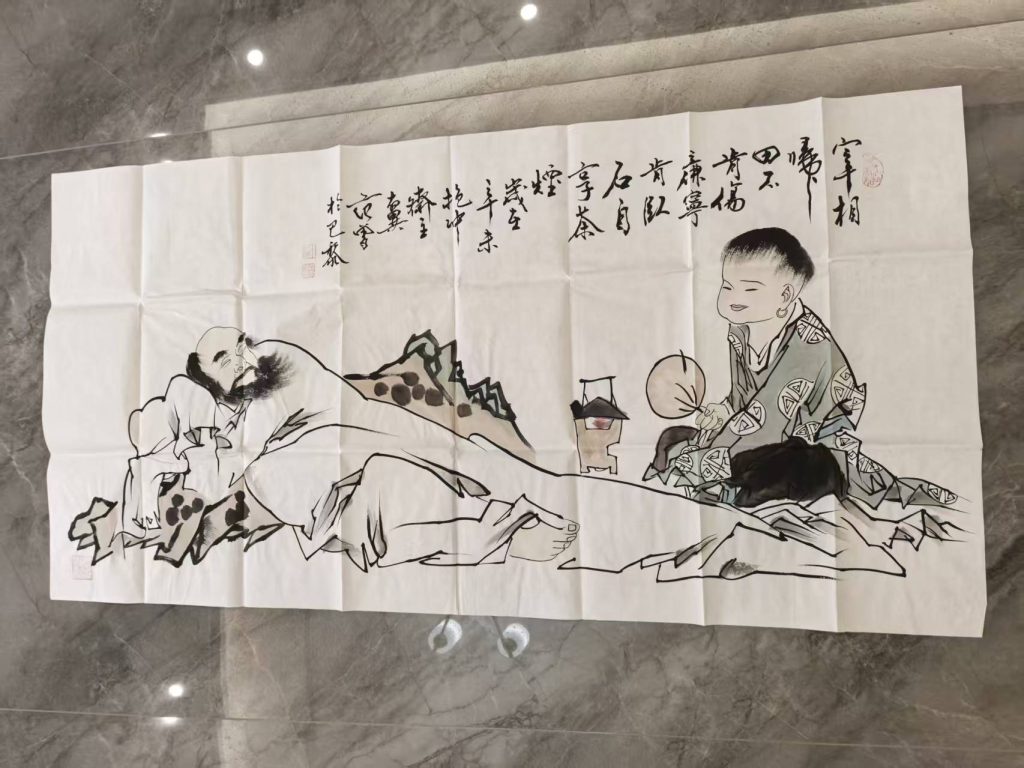 宰相
歸
田不
肯傷
廉寧
肯臥
石自
享茶
煙
歲在
辛未
抱冲
齋主
翼
范曾
於巴黎